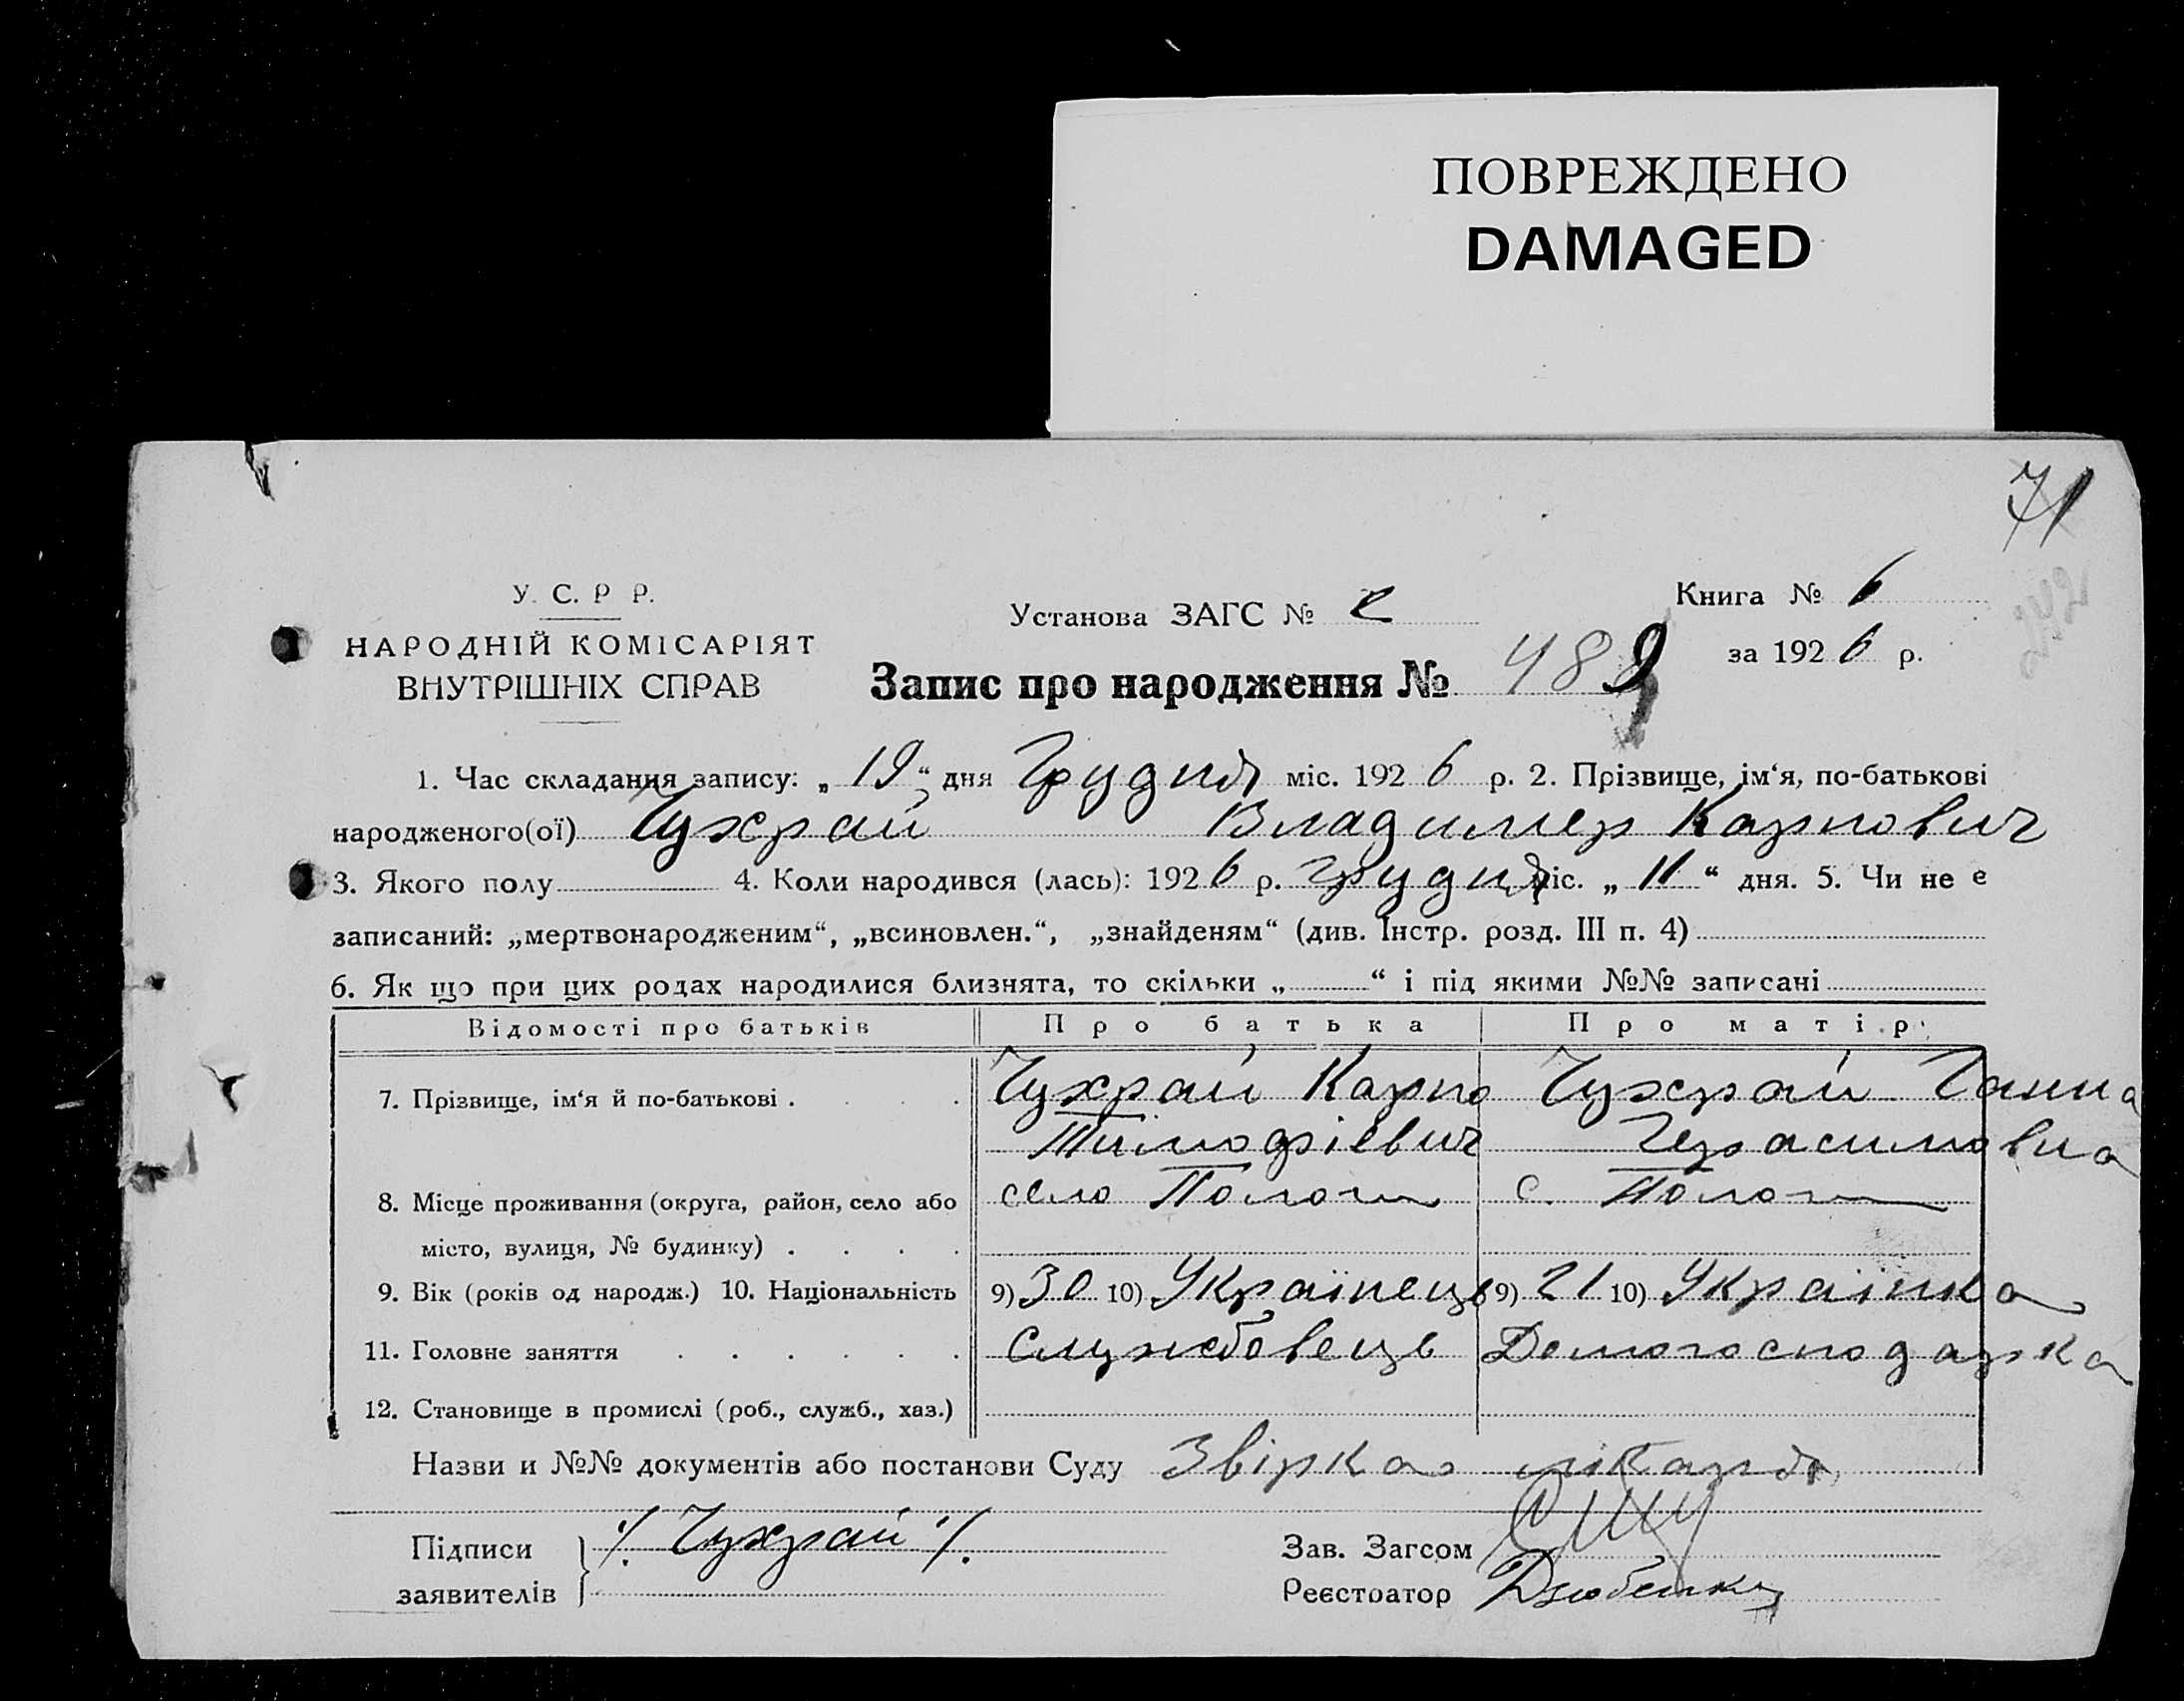 ПОВРЕЖДЕНО
DAMAGED
71
У. С. Р Р.
НАРОДНІЙ КОМІСАРІЯТ
ВНУТРІШНІХ СПРАВ
Установа ЗАГС №
Книга № 6
за 1926 р.
Запис про народження № 489
1. Час складання запису: „19“ дня Грудня міс. 1926 р. 2. Прізвище, ім‘я, по-батькові
народженого(ої) Чухрай Владимер Карпович
3. Якого полу 4. Коли народився (лась): 1926 р. грудня міс. „11“ дня. 5. Чи не е
записаний: „мертвонародженим“, „всиновлен.“, „знайденям“ (див. Інстр. розд. III п. 4)
6. Як що при цих родах народилися близнята, то скільки „ “ і під якими №№ записані
Відомості про батьків Про батька Про матір
7. Прізвище, ім‘я й по-батькові . Чухрай Карпо Чухрай Ганна
Тимофіевич Герасимовна
8. Місце проживання (округа, район, село або село Пологи с. Пологи
місто, вулиця, № будинку)
9. Вік (років од народж.) 10. Національність 9) 30 10) Українець 9) 21 10) Українка
11. Головне заняття Службовець Домогосподарка
12. Становище в промислі (роб., служб., хаз.)
Назви и №№ документів або постанови Суду Звірка
Підписи /. Чухрай /. Зав. Загсом
заявителів Реєстратор Дзюбенко